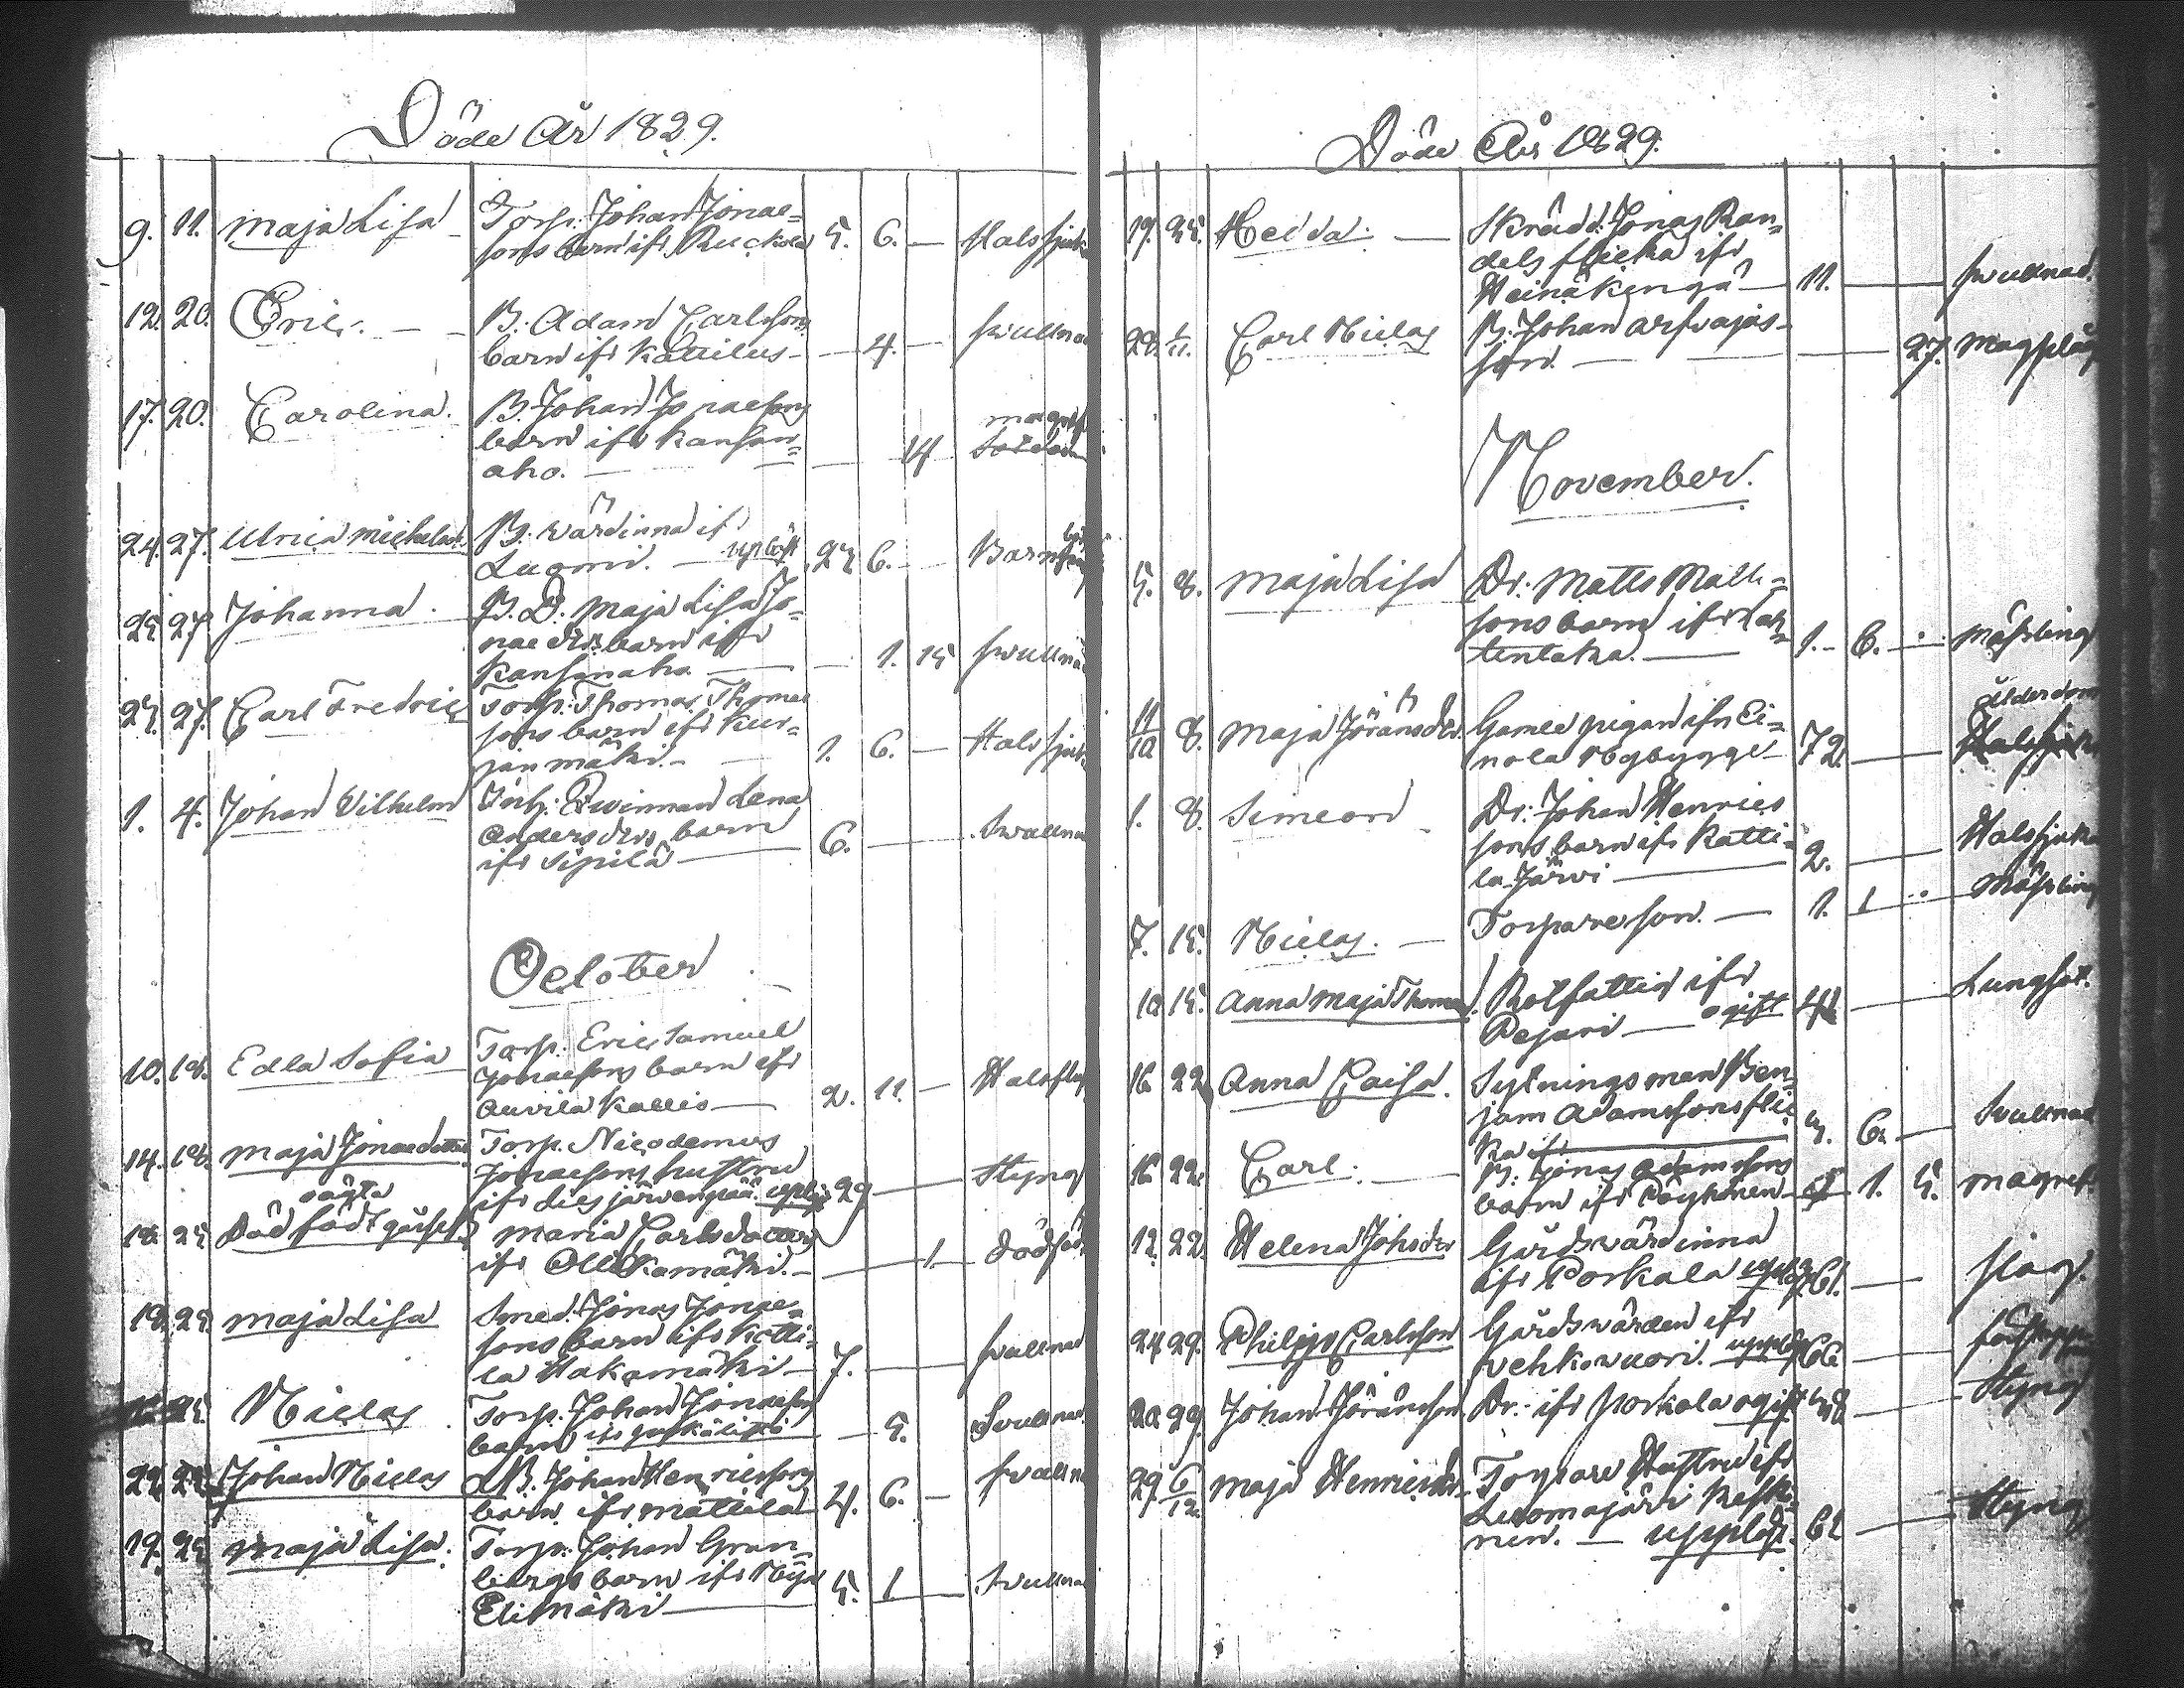 Döde År 1829.
9. 11. Maja Lisa Torp. Johan Jonae-
sons barn ifr Ruckola 5. 6. — Halssjuka
12. 20. Eric. — B. Adam Carlssons
barn ifr Kattilus — 4. — svullnad
17. 20. Carolina. B. Johan Jonaesons
barn ifr Kanson-
aho. — 14
24. 27. Ulrica Michelsdr B. värdinna ifr
Luomi. — 6. —
25 27 Johanna. B. D. Maja Lisa Jo-
nae drs barn ifr
Kansonaho — 1. 15 svullnad
27. Carl Fredric Torp. Thomas Thomae
sons barn ifr Kur-
jan mäki. — 1. 6. — Halssjuka
1. 4. Johan Vilhelm Torp. Qvinnan Lena
Anders drs barn
ifr Sipilä — 6. — Svullnad
October
10. 18. Edla Sofia Torp. Eric Samuel
Jonaesons barn ifr
Auvila Kallis — 2. 11. —
14. 18. Maja Jonaedotter Torp. Nicodemus
Jonaesons hustru
ifr — 29 — Styng
oägta
18. 25 Död född gosse Maria Carlsdotters
ifr Olli Kamäki. — 1. dödfödd
18. 25. Maja Lisa Smed. Jonas Jonae-
sons barn ifr Katti-
la Hakamäki — 7. — svullnad
25. Niclas. Torp. Johan Jonaesons
barn — 5. Svullnad
22. 25. Johan Niclas B. Johan Henricssons
barn ifr Mattila 4. 6. — svullnad
19. 25 Maja Lisa. Torp. Johan Gran-
bergs barn ifr Nya
Elimäki — 5. 1 — Svullnad
Döde År 1829.
19. 25. Hedda. — Skrädd. Jonas Ran-
dels flicka ifr
Heinäkengä — 11. — svullnad.
28. 1/11. Carl Niclas B. Johan Arfvajas-
son. — 27. Magplåg
November.
5. 8. Maja Lisa Dr. Matts Matts-
sons barn ifr Lah-
tentaka. — 1. - 6. — Mässling
11/10 8. Maja Jöransdr. Gamle pigan ifr Ei-
nola Nybygge — 72. — ålderdom
1. 8. Simeon Dr. Johan Henrics
sons barn ifr Katti-
la Järvi — 2. — Halssjuka
7. 15. Niclas. — Torpare son. — 1. 1 Mässling
10 15. Anna Maja Rotfattig ifr
Pejari — ogift — Lungsot.
16 22 Anna Caisa. Sytningsman Ben-
jam Adamssons flic
ka ifr — 6. — Svullnad
16 22. Carl. — B. Jonas Adamssons
barn ifr Pöyhönen — 1. 5. magref
12. 22. Helena Johsdr Gårdsvärdinna
ifr Porkala 61. — slag.
24 29. Philip Carlsson Gårdsvärden ifr
Vehkovuori. 66 —
20 29. Johan Jöransson. Dr. ifr Porkala ogift 48 — Styng
29. 6/12. Maja Henricsdr. Torpare Hustru ifr
Luomajärvi Keski-
nen. — — Styng